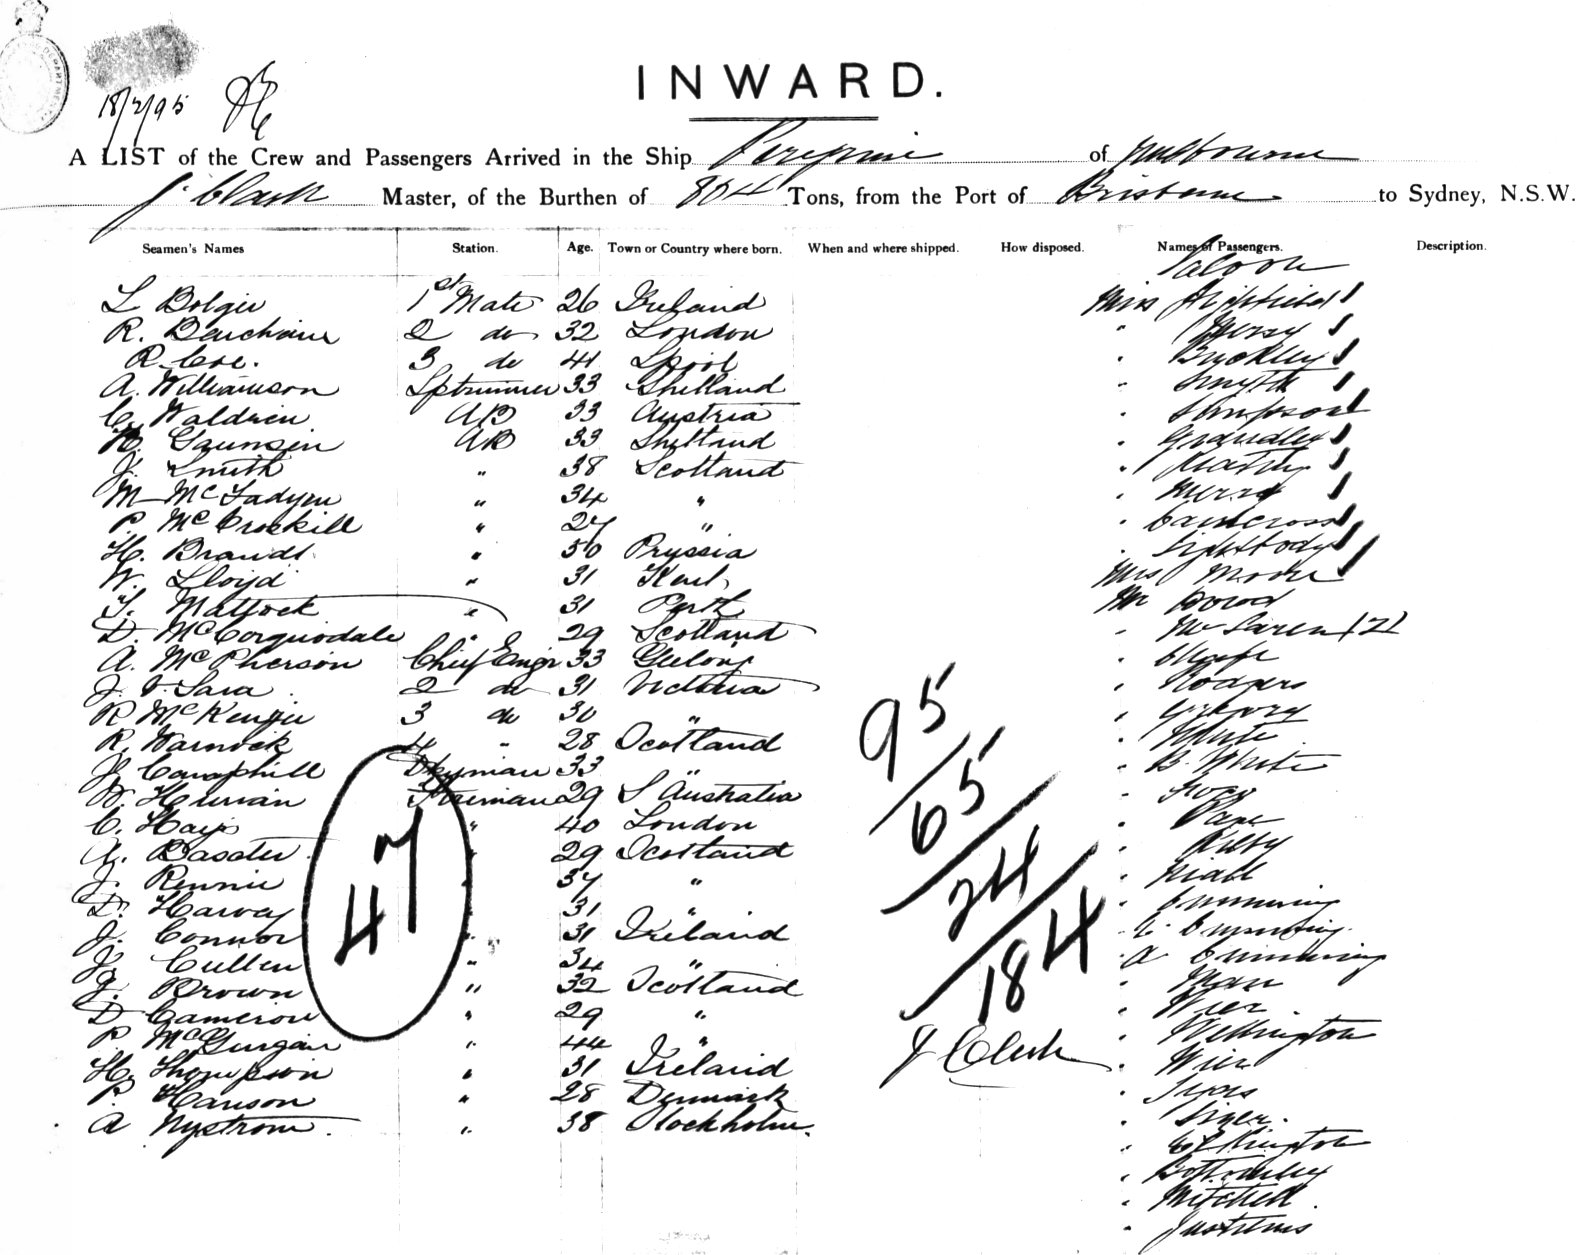 INWARD.
18/2/95
A LIST of the Crew and Passengers Arrived in the Ship Peregrine of Melbourne
J. Clark Master, of the Burthen of 804 Tons, from the Port of Brisbane to Sydney, N.S.W.
Seamen's Names Station. Age. Town or Country where born. When and where shipped. How disposed. Names of Passengers. Description.
Saloon
L Bolger 1st Mate 26 Ireland Miss Highfield
R. 2 do 32 London
R. Coe. 3 do 41 L'pool " Buckley
A. Williamson Lptrimmer 33 Shetland " Smyth
C. Waldrien AB 33 Austria " Simpson
AB 33 Shetland "
J. Smith " 38 Scotland "
M McFadyen " 34 " "
P. McCroskill " 27 " " Cairncross
H. Brandt " 50 Pryssia " Lightbody
W. Lloyd " 31 Kent Mrs Moore
T. Mattock " 31 Perth Mr Dowd
D. McCorquodale " 29 Scotland " McLaren (2)
A. McPherson Chief Engr 33 Geelong "
J. Sara 2 do 31 Victoria " Rodgers
R McKenzie 3 do 30 " " Gregory
R. Warnock 4 " 28 Scotland " White
J Campbill Dkyman 33 " " B. White
W. Hunian Fireman 29 S Australia "
C. Hay " 40 London " Pape
A. " 29 Scotland " Kilby
J. Rennie " 37 " " Niall
D. Harvey " 31 " " Cumming
J. Connor " 31 Ireland " Cumming
J. Cullen " 34 " " A Cumming
J. Brown " 32 Scotland " Man
D Cameron " 29 " " Wier
P. " 44 " " Wellington
H. Thompson " 31 Ireland " Wier
P. Hanson " 28 Denmark "
A Nystrom " 38 Stockholm. "
" Elkington
" Bottomley
" Mitchell
" Justins
47
95
65
24
184
J Clark